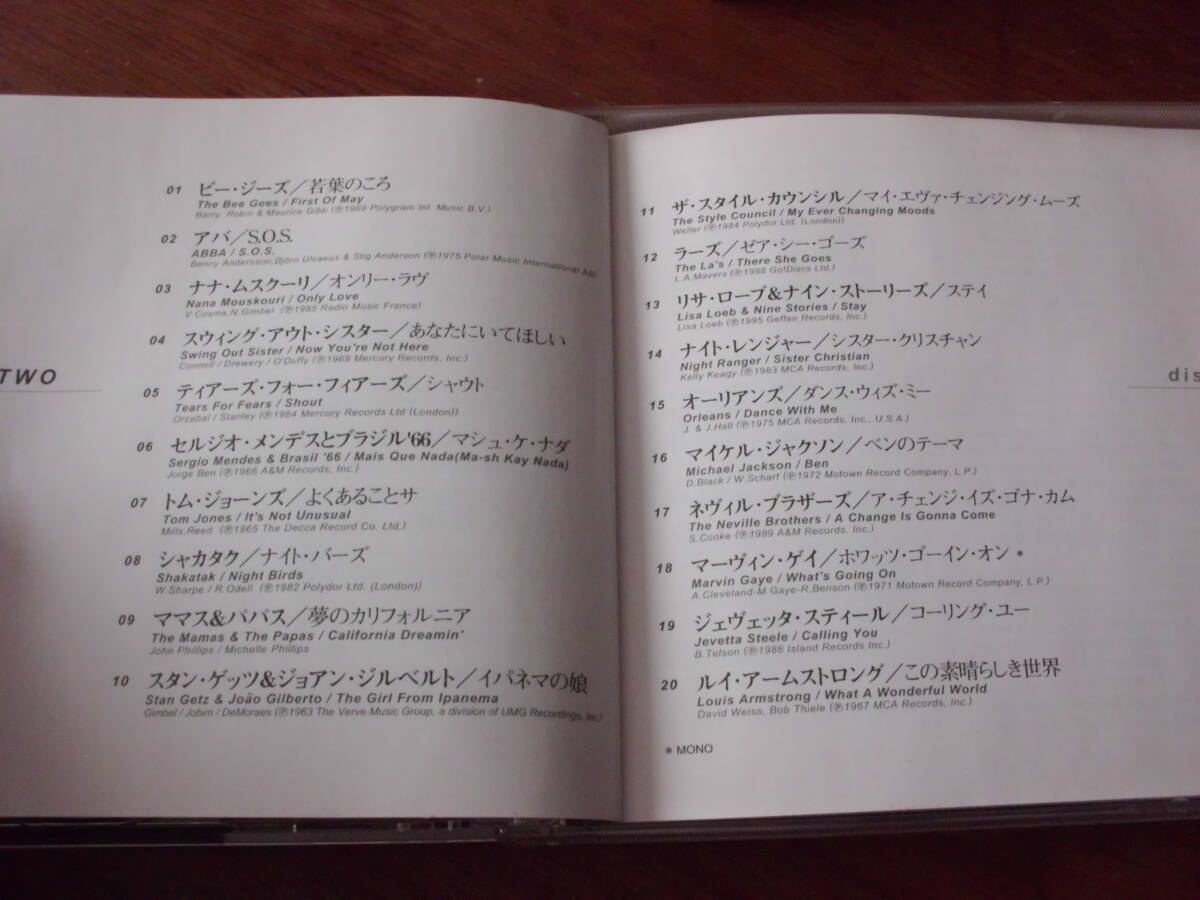 TWO
01 ビー・ジーズ／若葉のころ
The Bee Gees / First Of May
Barry, Robin & Maurice Gibb (Ⓟ1969 Polygram Int. Music B.V.)
02 アバ／S.O.S.
ABBA / S.O.S.
Benny Andersson,Björn Ulvaeus & Stig Anderson (Ⓟ1975 Polar Music International AB)
03 ナナ・ムスクーリ／オンリー・ラヴ
Nana Mouskouri / Only Love
V.Cosma,N.Gimbel (Ⓟ1985 Radio Music France)
04 スウィング・アウト・シスター／あなたにいてほしい
Swing Out Sister / Now You're Not Here
Connell / Drewery / O'Duffy (Ⓟ1969 Mercury Records, Inc.)
05 ティアーズ・フォー・フィアーズ／シャウト
Tears For Fears / Shout
Orzabal / Stanley (Ⓟ1984 Mercury Records Ltd (London))
06 セルジオ・メンデスとブラジル'66／マシュ・ケ・ナダ
Sergio Mendes & Brasil '66 / Mais Que Nada(Ma-sh Kay Nada)
Jorge Ben (Ⓟ1966 A&M Records, Inc.)
07 トム・ジョーンズ／よくあることサ
Tom Jones / It's Not Unusual
Mills,Reed (Ⓟ1965 The Decca Record Co. Ltd.)
08 シャカタク／ナイト・バーズ
Shakatak / Night Birds
W.Sharpe / R.Odell (Ⓟ1982 Polydor Ltd. (London))
09 ママス&パパス／夢のカリフォルニア
The Mamas & The Papas / California Dreamin'
John Phillips / Michelle Phillips
10 スタン・ゲッツ&ジョアン・ジルベルト／イパネマの娘
Stan Getz & João Gilberto / The Girl From Ipanema
Gimbel / Jobim / DeMoraes (Ⓟ1963 The Verve Music Group, a division of UMG Recordings, Inc.)
11 ザ・スタイル・カウンシル／マイ・エヴァ・チェンジング・ムーズ
The Style Council / My Ever Changing Moods
Weller (Ⓟ1984 Polydor Ltd. (London))
12 ラーズ／ゼア・シー・ゴーズ
The La's / There She Goes
L.A.Mavers (Ⓟ1988 Go!Discs Ltd.)
13 リサ・ローブ&ナイン・ストーリーズ／ステイ
Lisa Loeb & Nine Stories / Stay
Lisa Loeb (Ⓟ1995 Geffen Records, Inc.)
14 ナイト・レンジャー／シスター・クリスチャン
Night Ranger / Sister Christian
Kelly Keagy (Ⓟ1983 MCA Records, Inc.)
15 オーリアンズ／ダンス・ウィズ・ミー
Orleans / Dance With Me
J. & J.Hall (Ⓟ1975 MCA Records, Inc., U.S.A.)
16 マイケル・ジャクソン／ベンのテーマ
Michael Jackson / Ben
D.Black / W.Scharf (Ⓟ1972 Motown Record Company, L.P.)
17 ネヴィル・ブラザーズ／ア・チェンジ・イズ・ゴナ・カム
The Neville Brothers / A Change Is Gonna Come
S.Cooke (Ⓟ1989 A&M Records, Inc.)
18 マーヴィン・ゲイ／ホワッツ・ゴーイン・オン *
Marvin Gaye / What's Going On
A.Cleveland-M.Gaye-R.Benson (Ⓟ1971 Motown Record Company, L.P.)
19 ジェヴェッタ・スティール／コーリング・ユー
Jevetta Steele / Calling You
B.Telson (Ⓟ1988 Island Records Inc.)
20 ルイ・アームストロング／この素晴らしき世界
Louis Armstrong / What A Wonderful World
David Weiss, Bob Thiele (Ⓟ1967 MCA Records, Inc.)
* MONO
dis